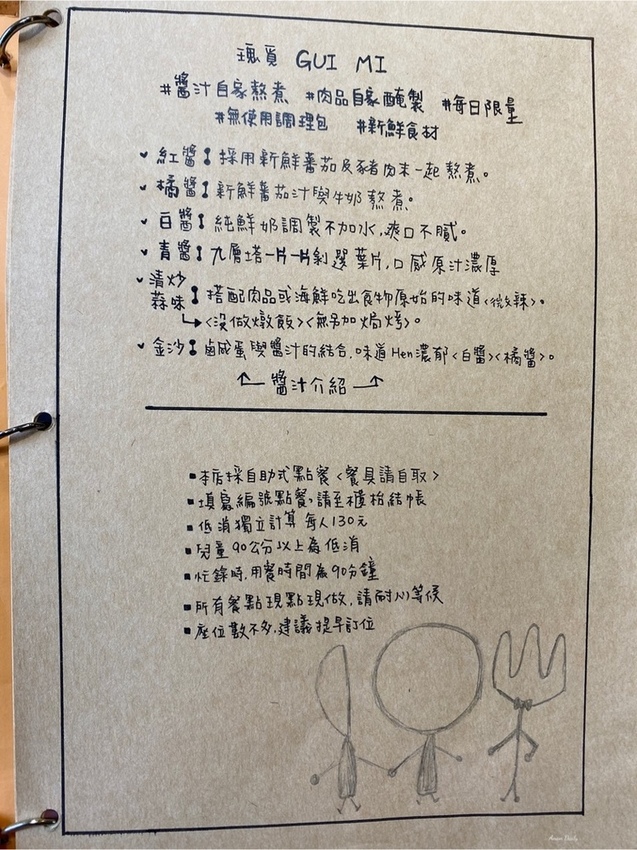 瑰覓 GUI MI
#醬汁自家熬煮 #肉品自家醃製 #每日限量
#無使用調理包 #新鮮食材
紅醬：採用新鮮蕃茄及豬肉末一起熬煮。
橘醬：新鮮蕃茄汁與牛奶熬煮。
白醬：純鮮奶調製不加水，爽口不膩。
青醬：九層塔一片一片剝選葉片，口感原汁濃厚
清炒
蒜味：搭配肉品或海鮮吃出食物原始的味道<微辣>。
↳<沒做燉飯><無另加焗烤>。
金沙：鹹蛋與醬汁的結合，味道Hen濃郁<白醬><橘醬>。
↑ 醬汁介紹 ↑
▪本店採自助式點餐<餐具請自取>
▪填寫編號點餐，請至櫃枱結帳
▪低消獨立計算 每人130元
▪兒童90公分以上為低消
▪忙錄時，用餐時間為90分鐘
▪所有餐點現點現做，請耐心等候
▪座位數不多，建議提早訂位